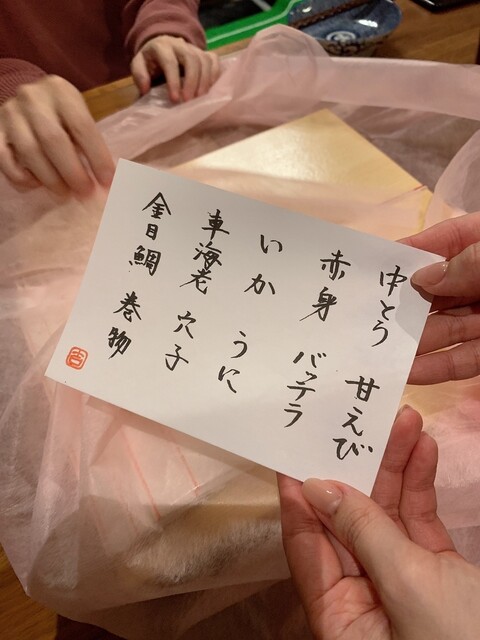 中とろ 甘えび
赤身 バッテラ
いか うに
車海老 穴子
金目鯛 巻物